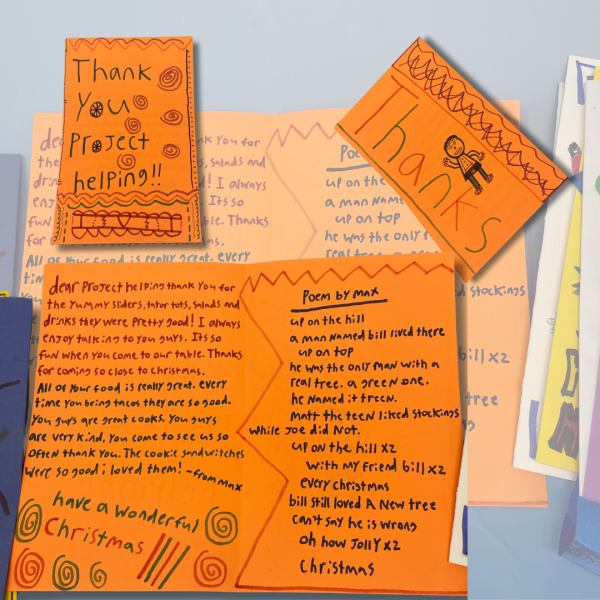 Thank
You
Project
helping!!
Thanks
dear Project helping thank you for
the yummy sliders, tator tots, salads and
drinks they were pretty good! I always
enjoy talking to you guys. Its so
fun when you come to our table. Thanks
for coming so close to christmas.
All of your food is really great. every
time you bring tacos they are so good.
You guys are great cooks. You guys
are very kind, you come to see us so
often thank you. The cookie sandwitches
were so good i loved them! -from max
have a wonderful
Christmas
Poem by max
up on the hill
a man named bill lived there
up on top
he was the only man with a
real tree. a green one.
he named it treen.
matt the teen liked stockings
while Joe did Not.
up on the hill x2
with my friend bill x2
every christmas
bill still loved A New tree
can't say he is wrong
oh how Jolly x2
Christmas